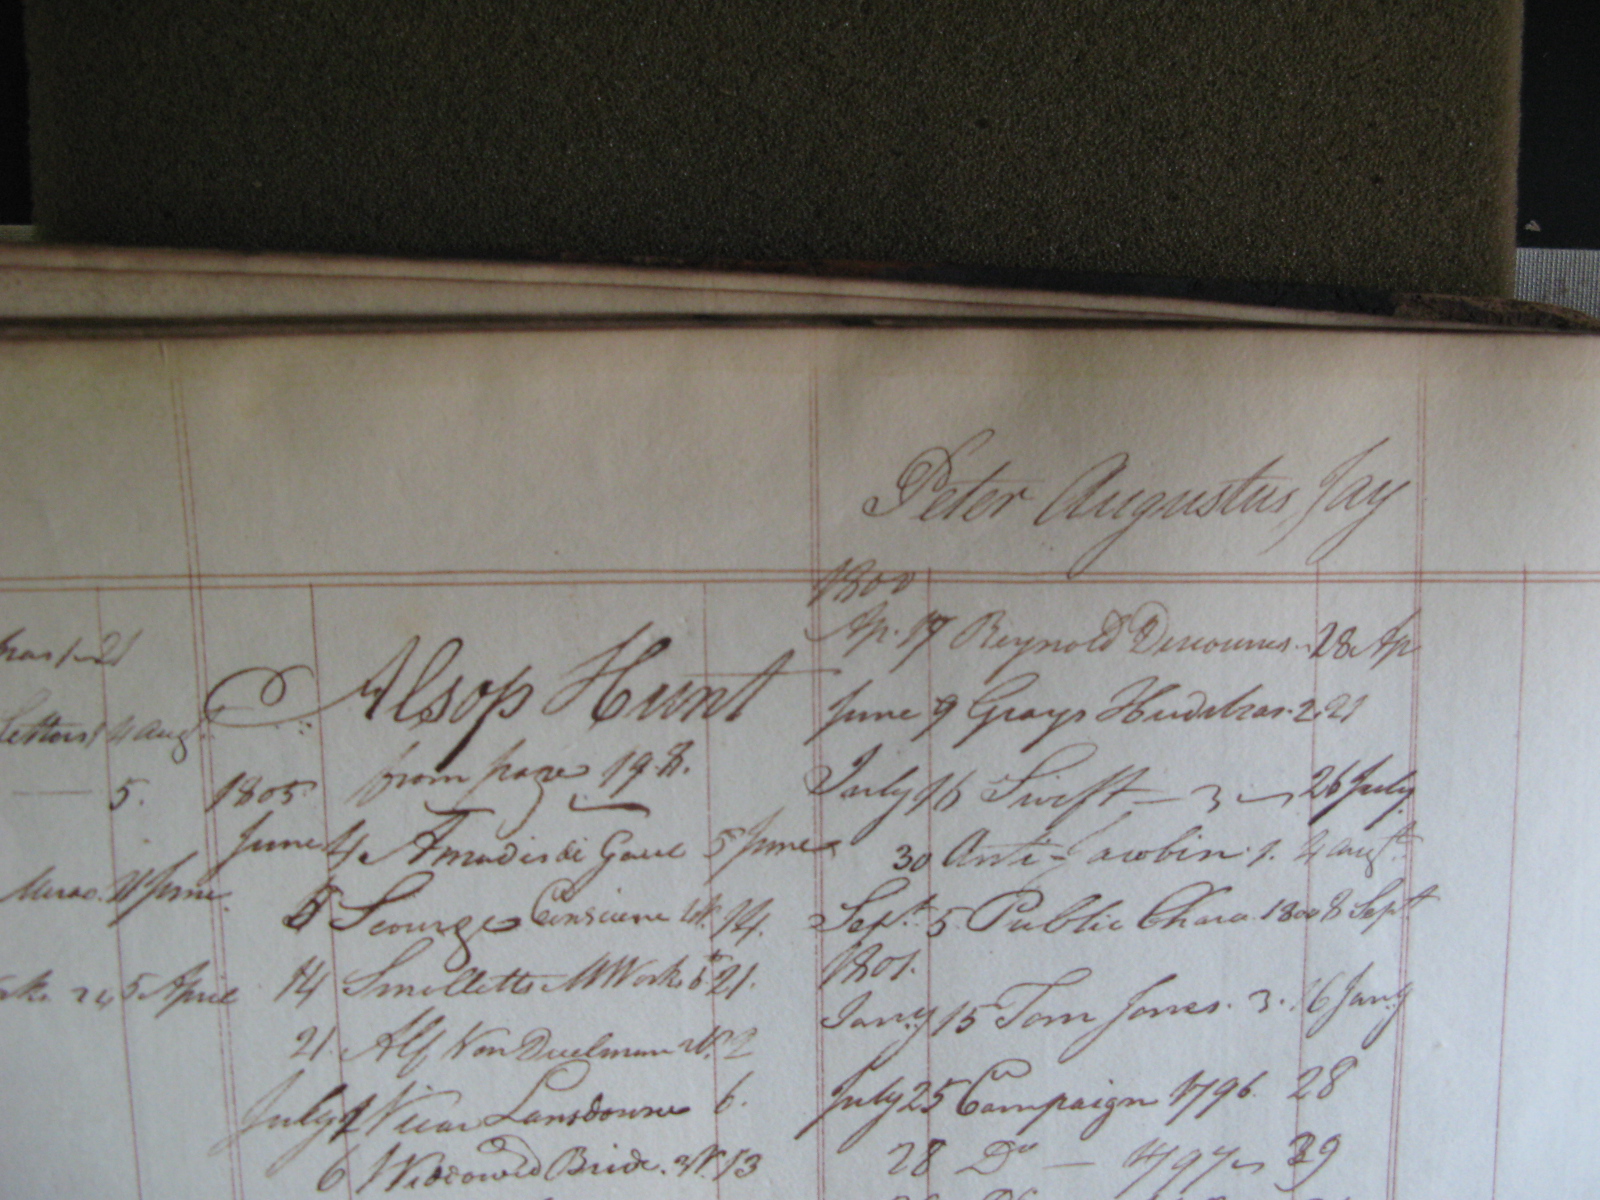 21
Letters 1 4 Augt
5.
11 June.
24 5 April
Alsop Hunt
from page 198.
1805
June 4 Amadis de Gaul 5 June
5 Scourge Conscience 14.
14 Smolletts M Works 6 21.
21. Alf Von Duelman 2
July 2 Vicar Lansdowne 6.
6 Widowed Bride. 13
Peter Augustus Jay
1800
Ap. 17 Reynold Discourses 28 Ap
June 9 Grays Hudibras 2. 21
July 16 Swift — 3 — 26 July
30 Anti-Jacobin 1. 4 Augt
Sept. 5 Public Chara. 1800 8 Sept
1801.
Jany 15 Tom Jones. 3. 16 Jany
July 25 Campaign 1796. 28
28 Do — 1797 29